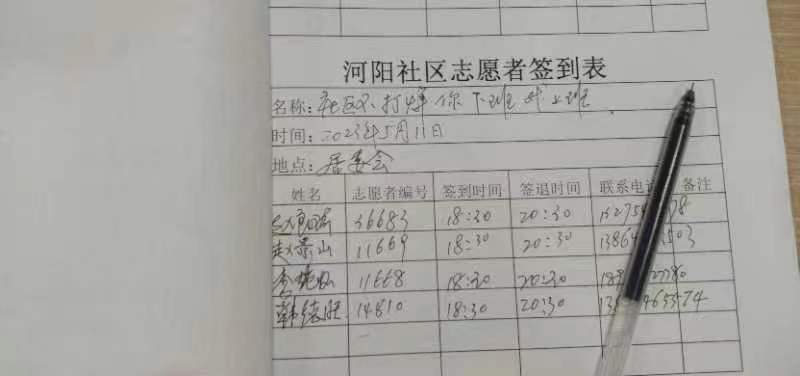 河阳社区志愿者签到表
名称：社区不打烊 你下班我上班
时间：2023年5月11日
地点：居委会
姓名 志愿者编号 签到时间 签退时间 联系电 备注
36683 18:30 20:30 15275 78
赵景山 11669 18:30 20:30 1386 503
李 11668 18:30 20:30 18 27780
韩德胜 14810 18:30 20:30 13 4635574